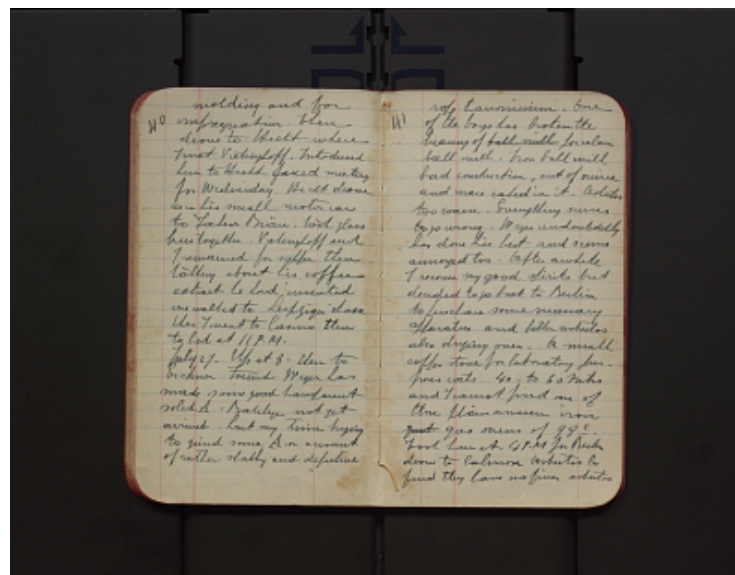 110
molding and for
impregnation. Then
drove to Hecht where
I met Vietinghoff. Introduced
him to Hecht fixed meeting
for Wednesday. Hecht drove
in his small motor car
to Brän. Took glass
beer together. Vietinghoff and
I remained for coffee then
talking about his coffee
extract he had invented
we walked to
then I went to Casino then
to bed at 11 P.M.
July 27. Up at 8. then to
found Meyer has
made some good transparent
solid A. not yet
arrived. Lost my time trying
to grind some A on account
of rather shabby and defective
111
rope transmission. One
of the boys has broken the
bearing of ball mill, porcelain
ball mill. Iron ball mill
bad construction, out of
and mass caked in it. Asbestos
too coarse. Everything seems
to go wrong. Meyer undoubtedly
has done his best and seems
annoyed too. After awhile
I recover my good spirits but
decided to go back to Berlin
to purchase some necessary
apparatus and better asbestos
also drying oven. A small
coffee stove for laboratory pur-
poses costs 40 to 60 Marks
and I cannot find one of
iron
gas ovens of 99¢.
Took train at 4 P.M. for Berlin
drove to Calmon Asbestos Co
found they have no finer asbestos